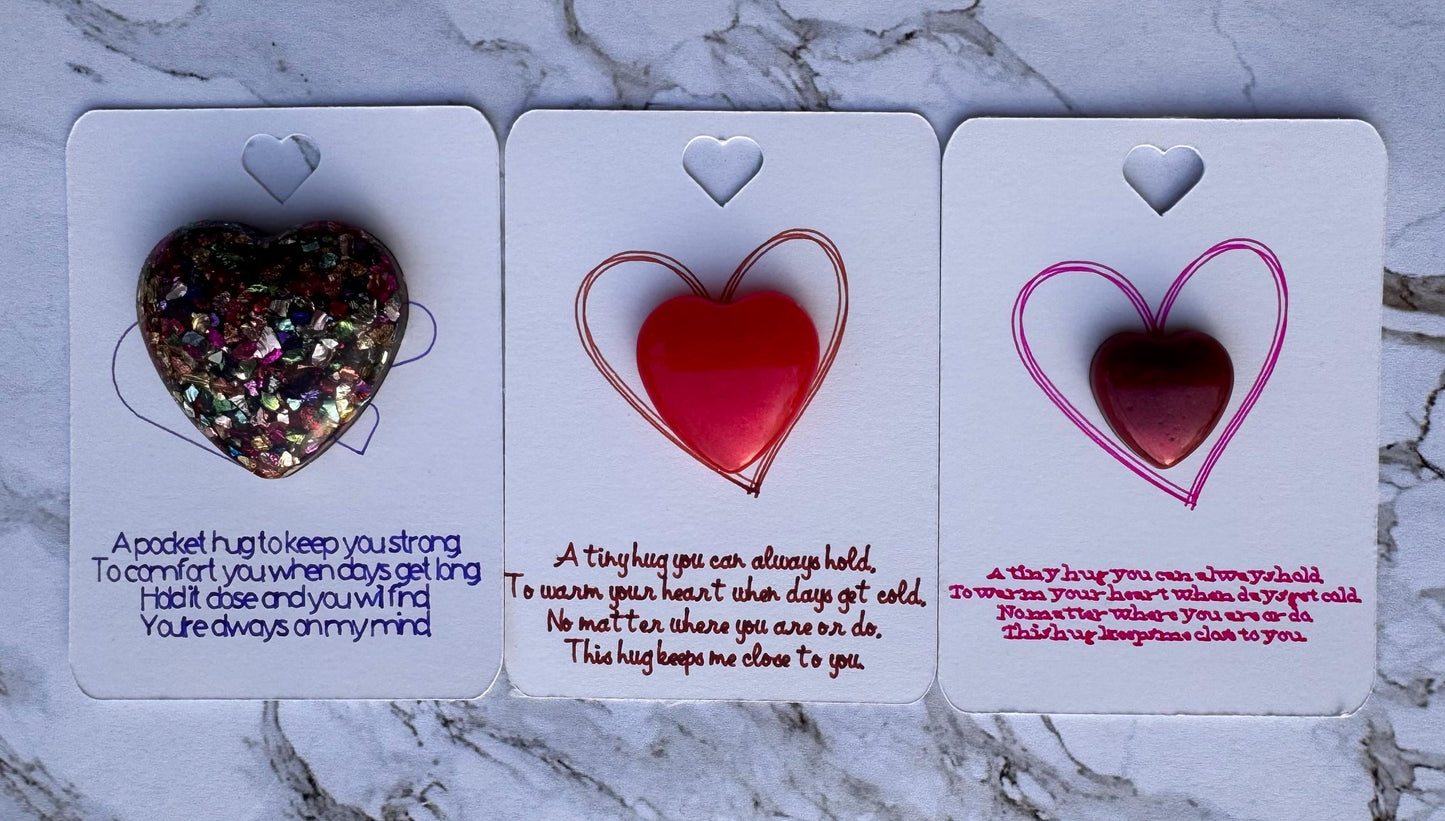 A pocket hug to keep you strong
To comfort you when days get long
Hold it close and you will find
You're always on my mind
A tiny hug you can always hold,
To warm your heart when days get cold,
No matter where you are or do,
This hug keeps me close to you.
A tiny hug you can always hold
To warm your heart when days get cold
No matter where you are or do
This hug keeps me close to you